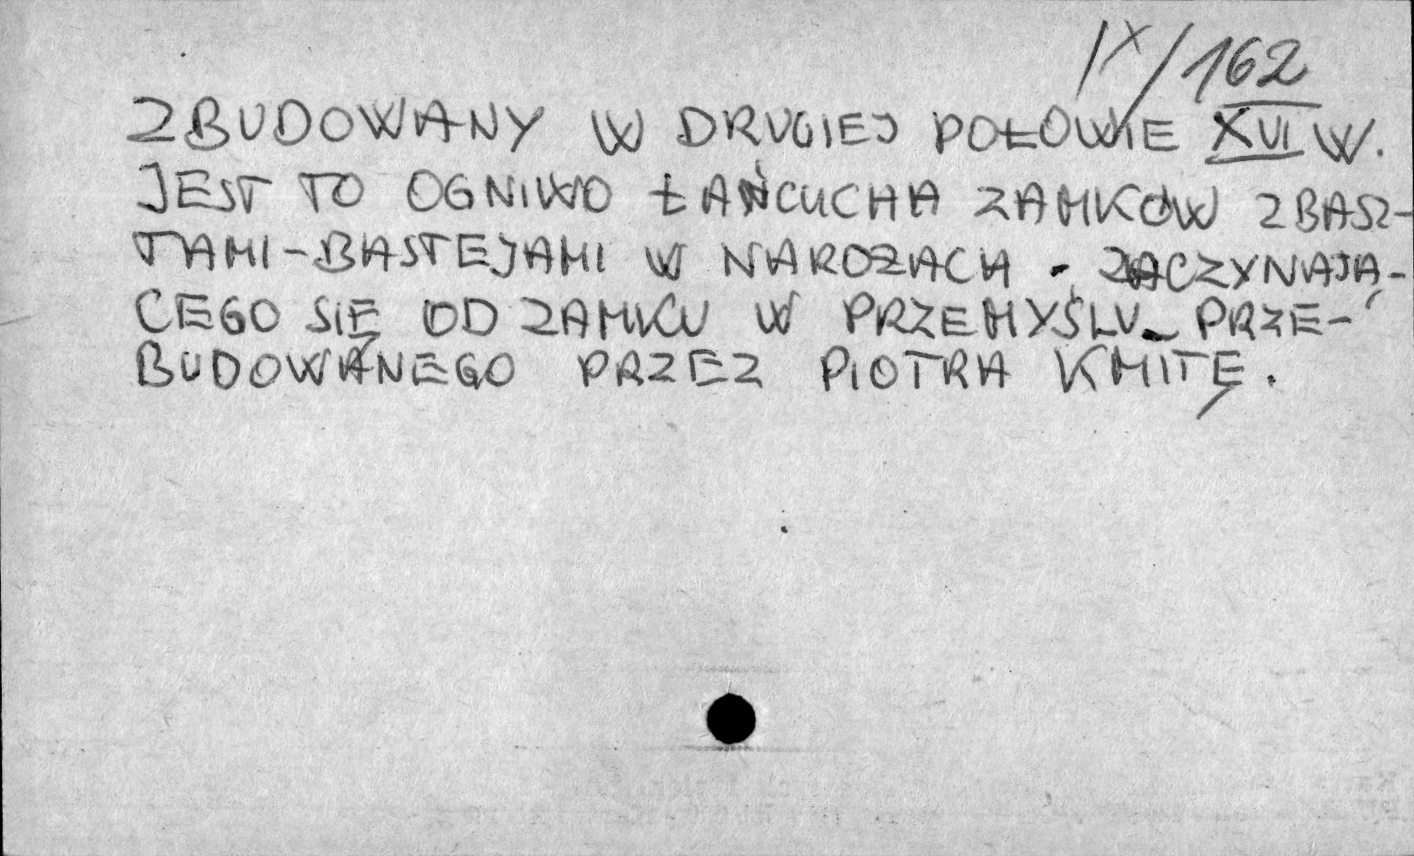 IX/162
ZBUDOWANY W DRUGIEJ POŁOWIE XVI W.
JEST TO OGNIWO ŁAŃCUCHA ZAMKÓW Z BASZ-
TAMI-BASTEJAMI W NAROŻACH - ZACZYNAJĄ-
CEGO SIĘ OD ZAMKU W PRZEMYŚLU - PRZE-
BUDOWANEGO PRZEZ PIOTRA KMITĘ.